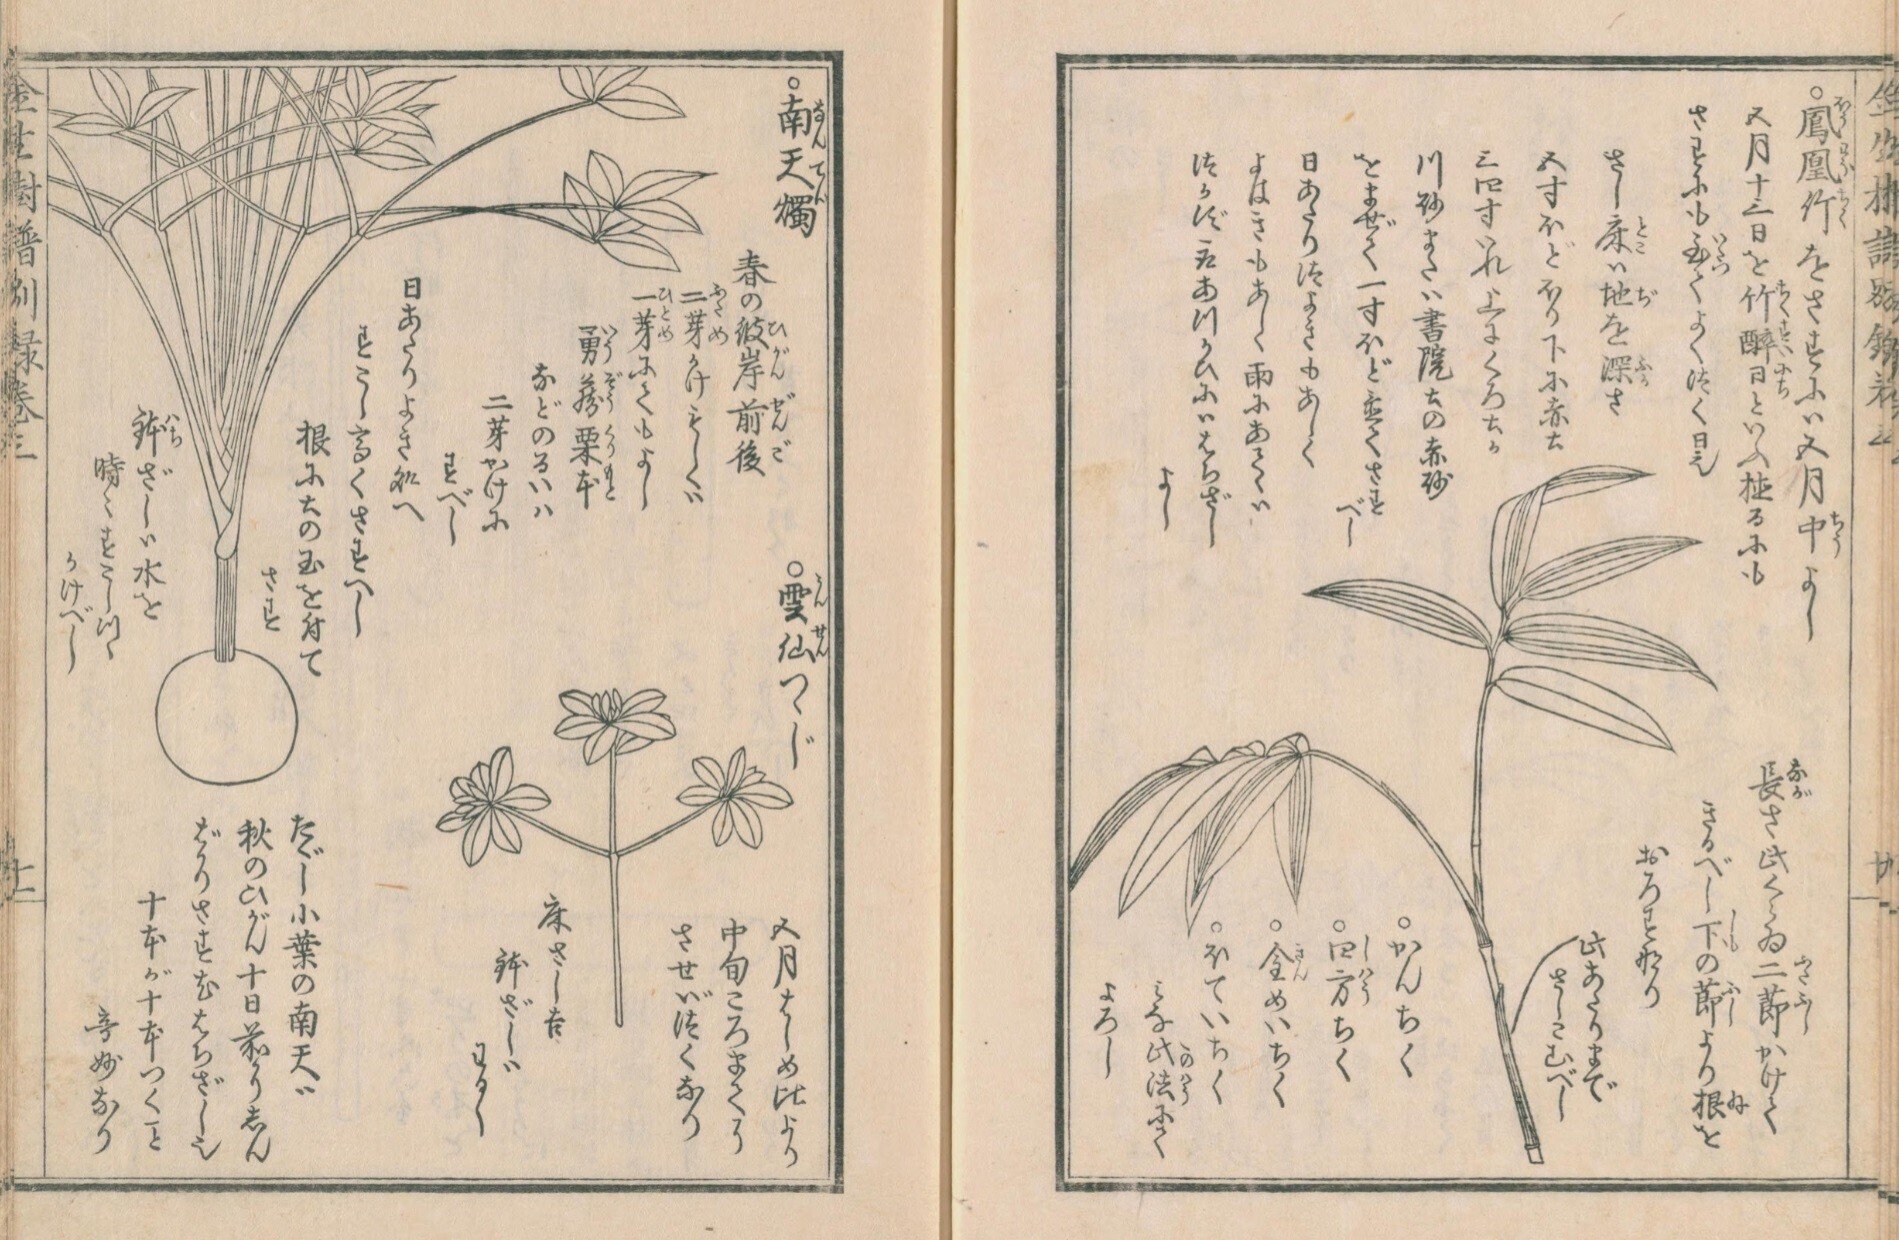 ○鳳凰竹をさすにハ五月中よし
五月十三日を竹酔日といふ植るにも
さすにも至てよくつく日也
さし床ハ地を深さ
五寸ほどほり下に赤土
三四寸いれ上にくろ土か
川砂または書院土の赤砂
をまぜて一寸ほど置てさす
べし
日あたりつよきもあしく
よはきもあしく雨にあてハ
つかず
はちざし
よし
長さ此くらゐ二節かけて
きるべし下の節より根を
おろすなり
此あたりまで
さしこむべし
○かんちく
○四方ちく
○金めいちく
○ほていちく
みな此法にて
よろし
○南天燭
春の彼岸前後
二芽かけもしくハ
一芽にてもよし
勇蔵栗本
などのるいハ
二芽かけに
すべし
日あたりよき処へ
すこし高くさすへし
根に土の玉を付て
さす
鉢ざしハ水を
時々すこしツヽ
かけべし
たゞし小葉の南天ハ
秋のひがん十日前よりしん
ばかりさすなはちざし也
十本が十本つくこと
奇妙なり
○雲仙つゝじ
五月はしめ比より
中旬ころまてに
させばつくなり
床さし吉
鉢ざしハ
わるし
金生樹譜別録巻三